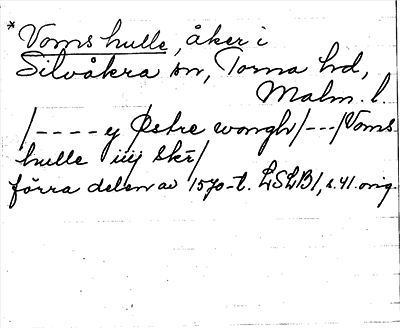 * Voms hulle, åker i
Silvåkra sn, Torna hd,
Malm. l.
/---- y Østre wongh/---/Voms
hulle iiij skr/
förra delen av 1570-t. LSLB1, s.41. orig.